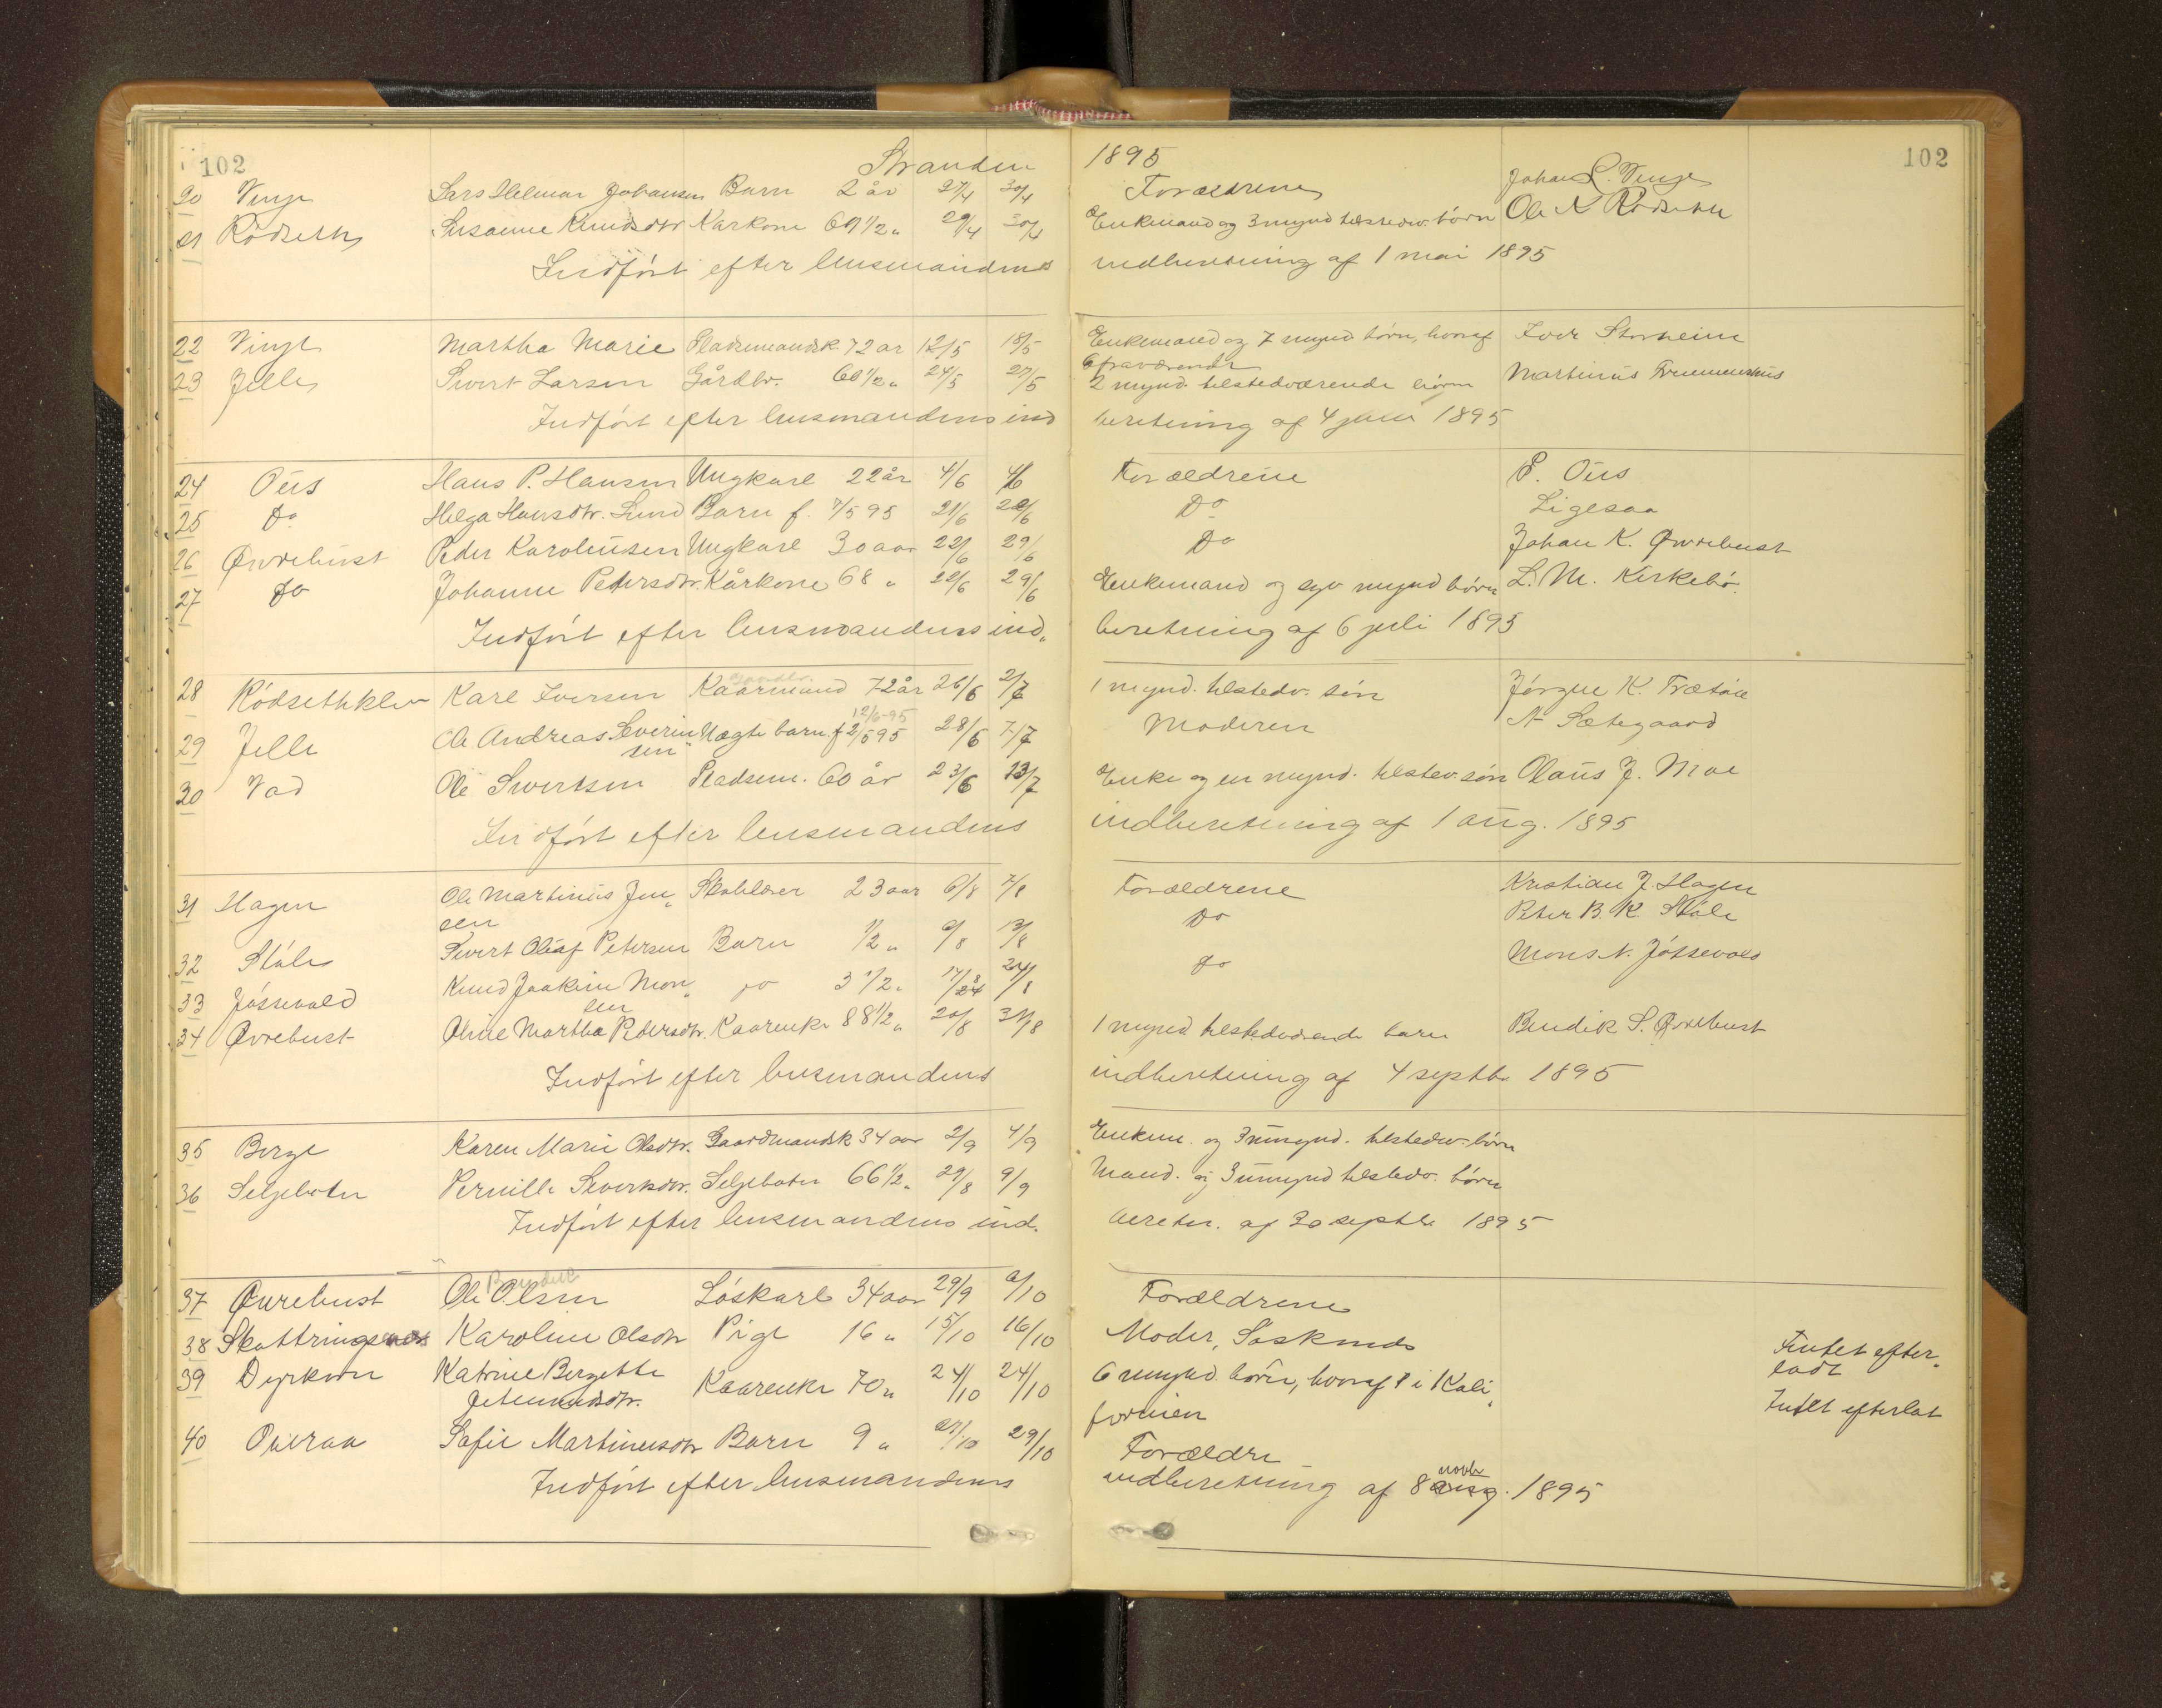 102
Stranden
1895
102
20 Vinje Lars Helmar Johansen Barn 2 år 27/4 30/4 Forældrene Johan L. Vinje
21 Rødseth Susanne Knudsdtr Karkone 69 1/2 „ 29/4 30/4 Enkemand og 3 mynd tilstedv. børn Ole N Rødseth
Indført efter lensmandens indberetning af 1 mai 1895
22 Vinje Martha Marie Pladsemandsk. 72 år 12/5 18/5 Enkemand og 7 mynd børn, hvoraf Iver Storheim
6 fraværende
23 Jelle Sivert Larsen Gårdbr. 60 1/2 „ 24/5 27/5 2 mynd. tilstedværende børn Martinus
Indført efter lensmandens indberetning af 4 juni 1895
24 Ous Hans P. Hansen Ungkarl 22 år 4/6 4/6 Forældrene P. Ous
25 Do Helga Hansdtr. Lund Barn f. 7/5 95 21/6 Do Ligesaa
26 Øvrebust Peder Karolinsen Ungkarl 30 aar 22/6 29/6 Do Johan K. Øvrebust
27 Do Johanne Petersdtr. Kårkone 68 „ 22/6 29/6 Enkemand og syv mynd børn L. M. Kirkebø.
Indført efter lensmandens ind„ beretning af 6 juli 1895
28 Rødsethklev Karl Iversen Kaarmand 72 år 26/6 2/7 1 mynd. tilstedv. søn Jørgen K. Trætøie
12/6-95
29 Jelle Ole Andreas Severin„ Uægte barn. f 2/5 95 28/6 7/7 Moderen N Sætegaard
sen
30 Vad Ole Sivertsen Pladsem. 60 år 23/6 13/7 Enke og en mynd. tilstev. søn Olaus J. Moe
Indført efter lensmandens indberetning af 1 aug. 1895
31 Hagen Ole Martinus Jen„ Skolelærer 23 aar 6/8 7/8 Forældrene Kristian J. Hagen
sen
32 Ståle Sivert Olaf Petersen Barn 1/2 „ 9/8 13/8 Do Peter B. K. Ståle
33 Jøssevold Knud Joakim Mon„ do 3 1/2 „ 17/8 24/8 do Mons N. Jøssevold
sen
34 Øvrebust Oline Martha Pedersdtr. Kaarenke 88 1/2 „ 20/8 31/8 1 mynd tilstedværende barn Bendik S. Øvrebust
Indført efter lensmandens indberetning af 4 septbr 1895
35 Berge Karen Marie Olsdtr. Gaardmandsk 34 aar 2/9 4/9 Enkem. og 3 umynd. tilstedv. børn
36 Seljeboten Pernille Siversdtr. Seljeboten 66 1/2 „ 29/8 9/9 Mand. og 3 umynd tilstedv. børn
Indført efter lensmandens ind. beretn. af 30 septbr 1895
Bendik
37 Øvrebust Ole Olsen Løskarl 34 aar 29/9 6/10 Forældrene
38 Skottringsnes Karoline Olsdtr Pige 16 „ 15/10 16/10 Moder, Søskende Intet efter„
ladt
39 Dyrkorn Katrine Bergette Kaarenke 70 „ 24/10 24/10 6 mynd. børn, hvoraf 1 i Kali„ Intet efterlat
fornien
40 Overaa Safie Martinusdtr Barn 9 „ 27/10 29/10 Forældre
Indført efter lensmandens indberetning af 8 aug. novbr 1895